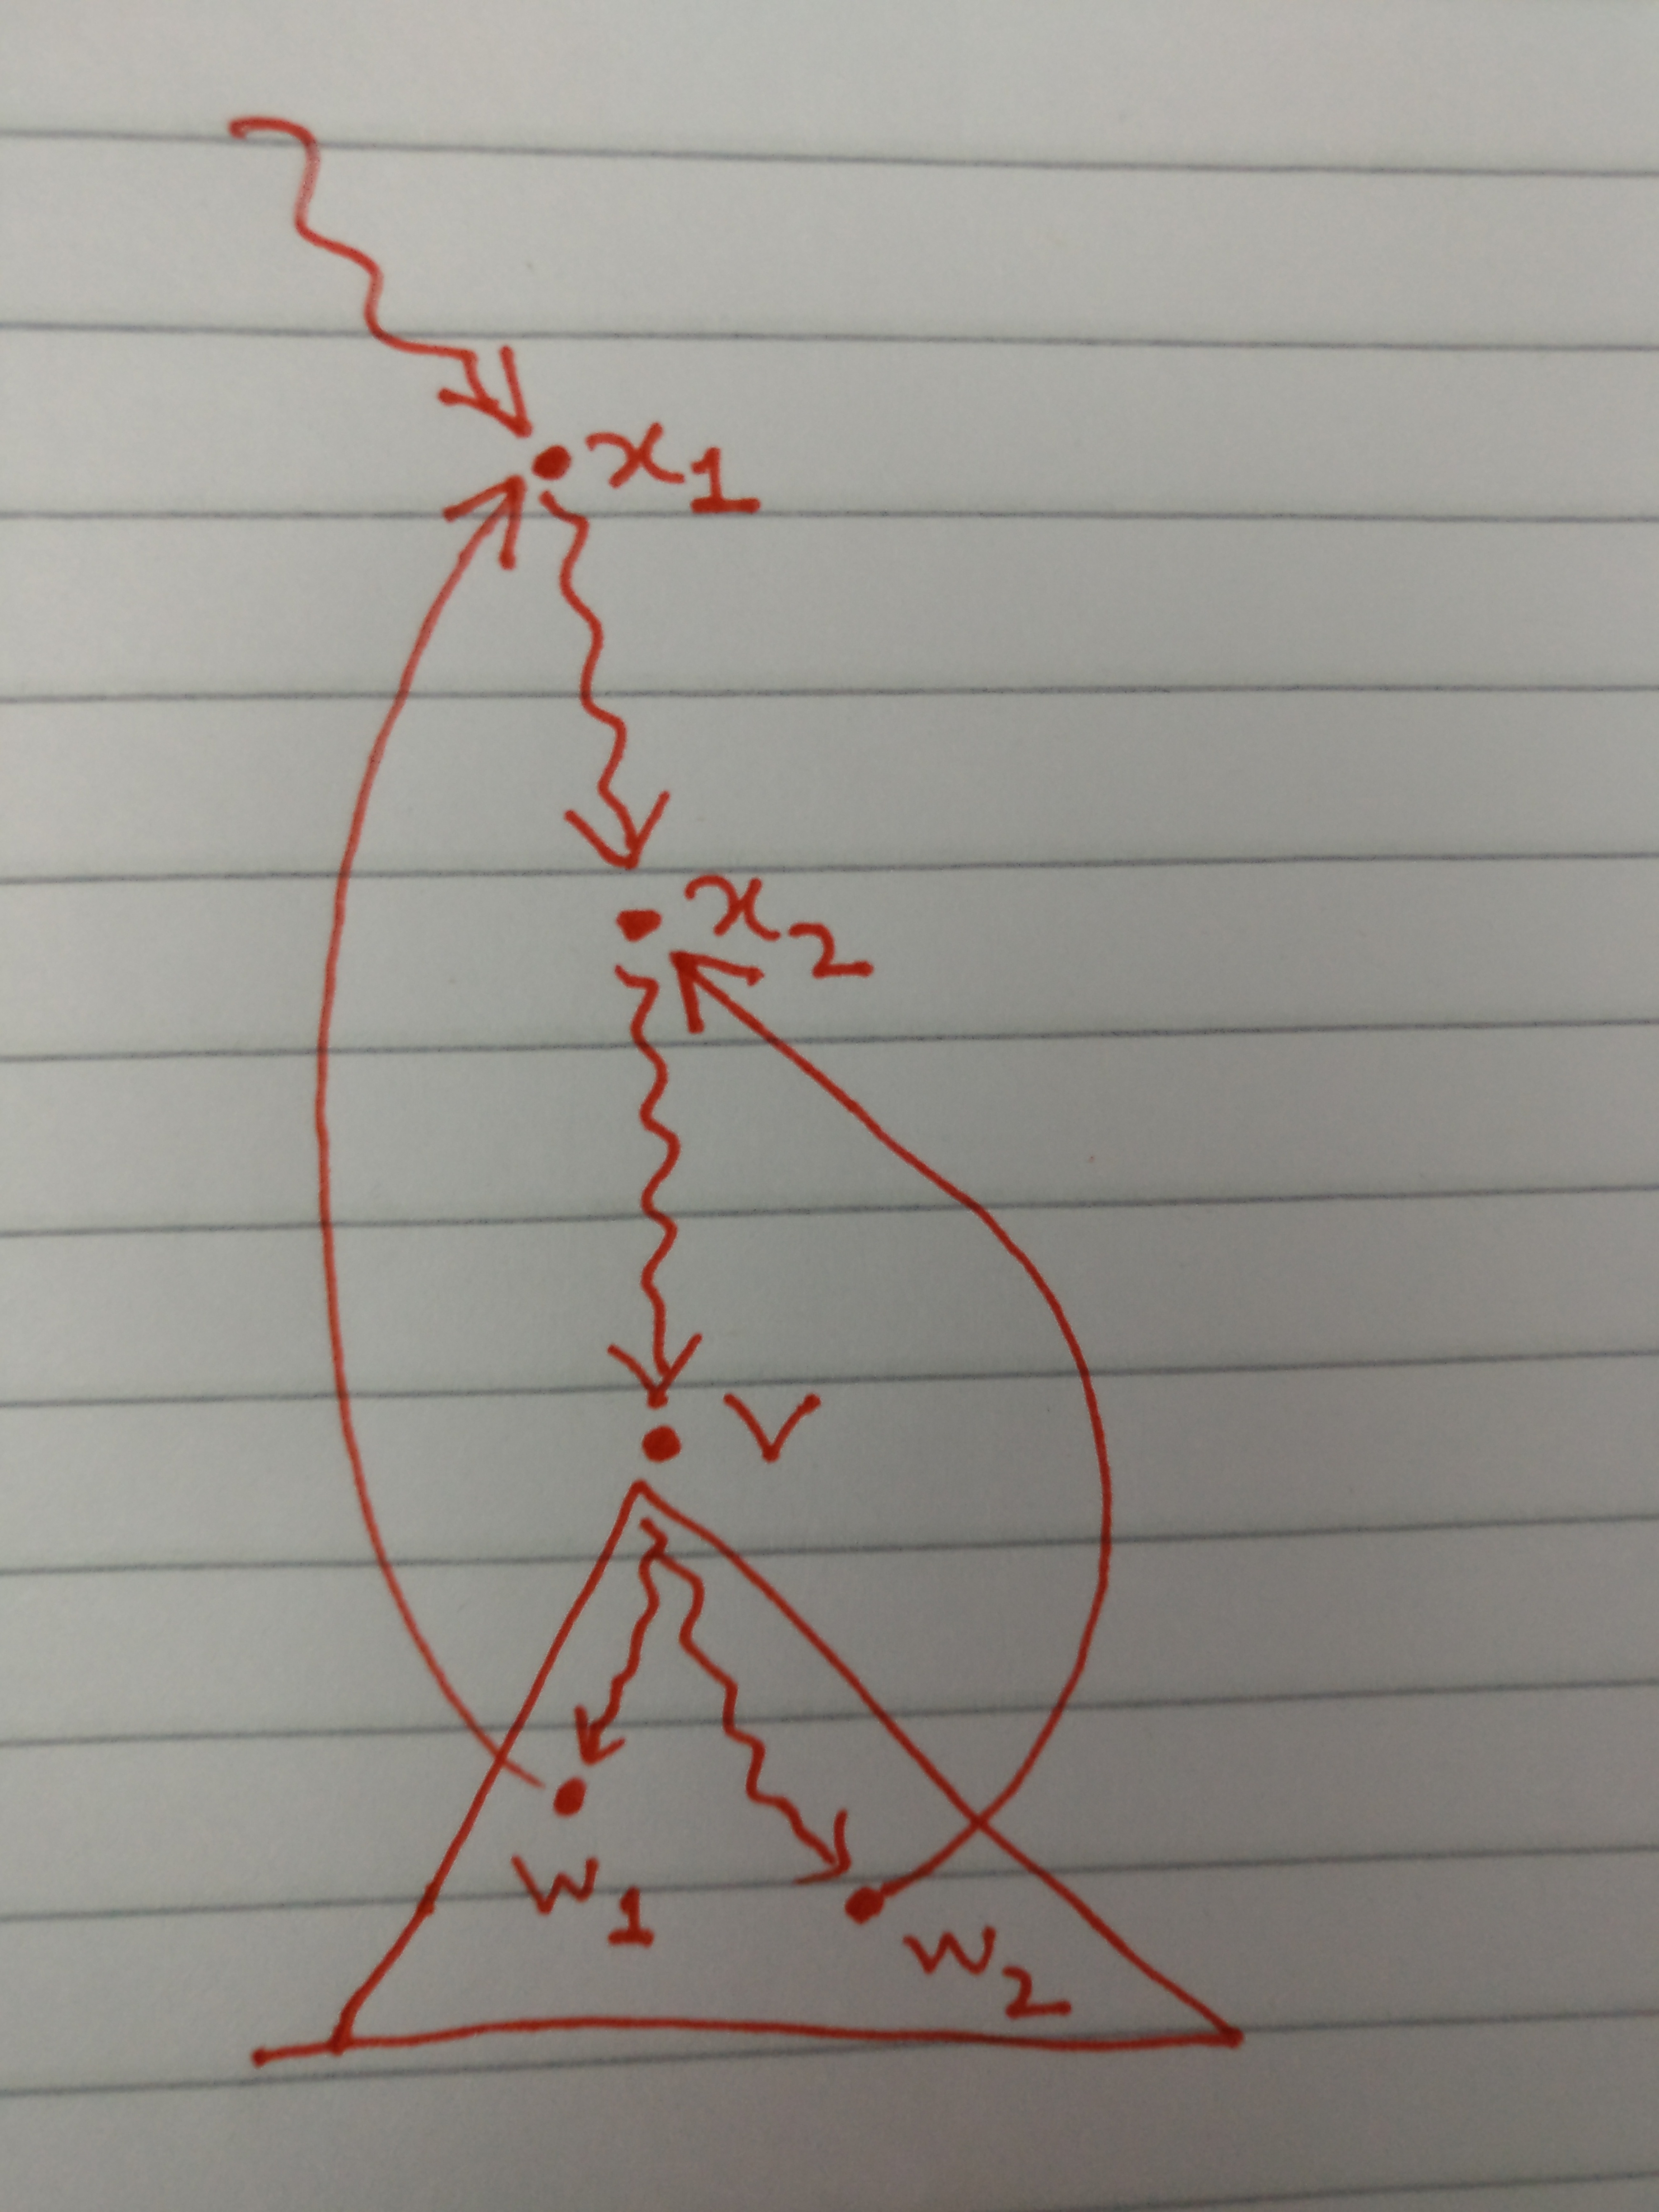 x1
x2
v
w1
w2